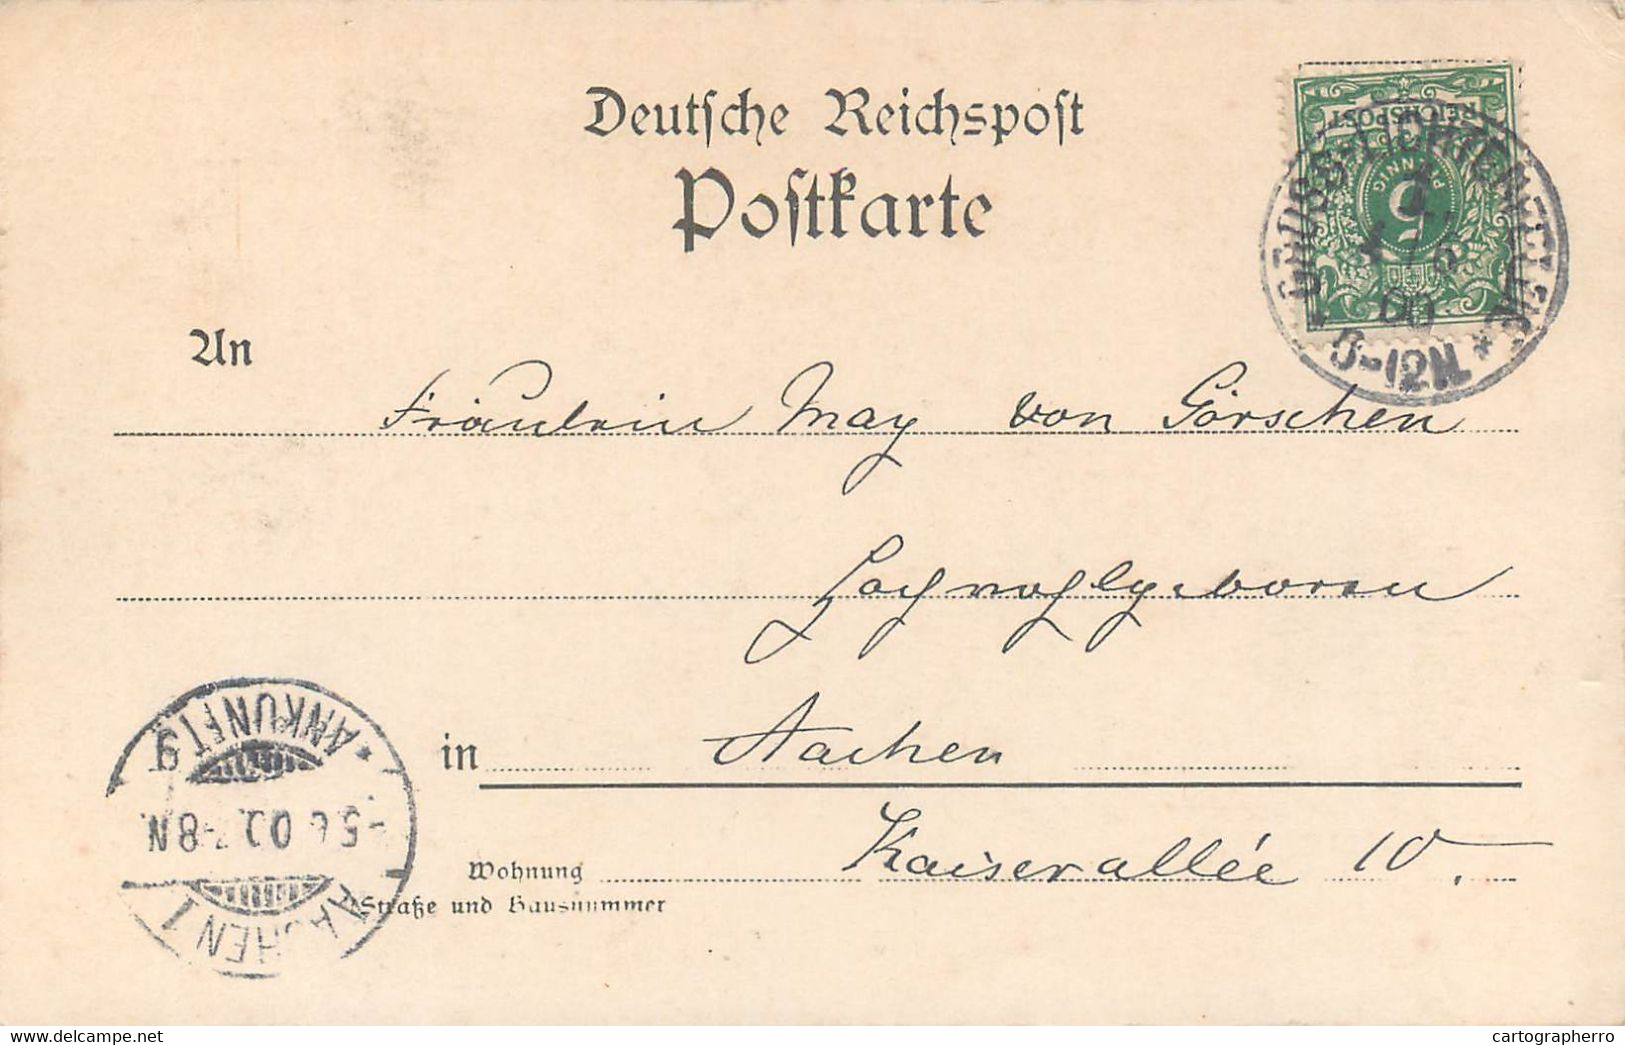 Deutsche Reichspost
Postkarte
REICHSPOST
PFENNIG
5
00
-12N.
An
Fräulein May von Görschen
Hochwohlgeboren
in Aachen
Wohnung Kaiserallée 10.
Straße und Hausnummer
* ANKUNFT 9
-5 6 00 7-8N.
AACHEN 1
www.delcampe.net
cartographerro